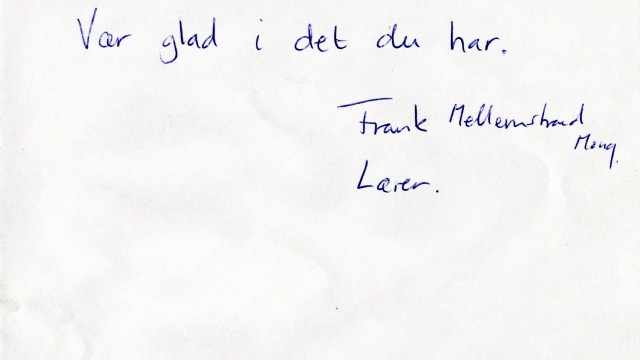 Vær glad i det du har.
Frank Mellemstrand
Moną.
Lærer.